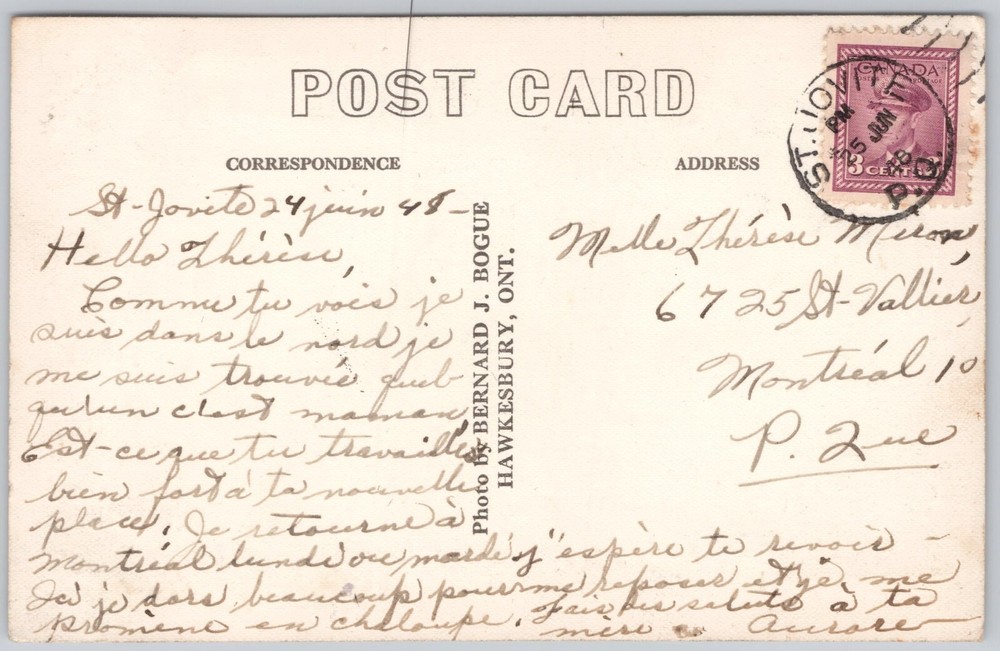 POST CARD
CORRESPONDENCE
ADDRESS
CANADA
3 CENTS 3
ST. JOVITE
PM
25 JUN
48
P.Q.
St-Jovite 24 juin 48 -
Hello Thérèse,
Comme tu vois je
suis dans le nord je
me suis trouvée quel-
qu'un c'est maman
Est-ce que tu travailles
bien fort à ta nouvelle
place. Je retourne à
Montréal lundi ou mardi j'espère te revoir -
Ici je dors beaucoup pour me reposer et je me
promène en chaloupe. Fais des saluts à ta
mère Aurore
Photo by BERNARD J. BOGUE
HAWKESBURY, ONT.
Melle Thérèse Miron,
6725 St-Vallier,
Montréal 10
P. Que